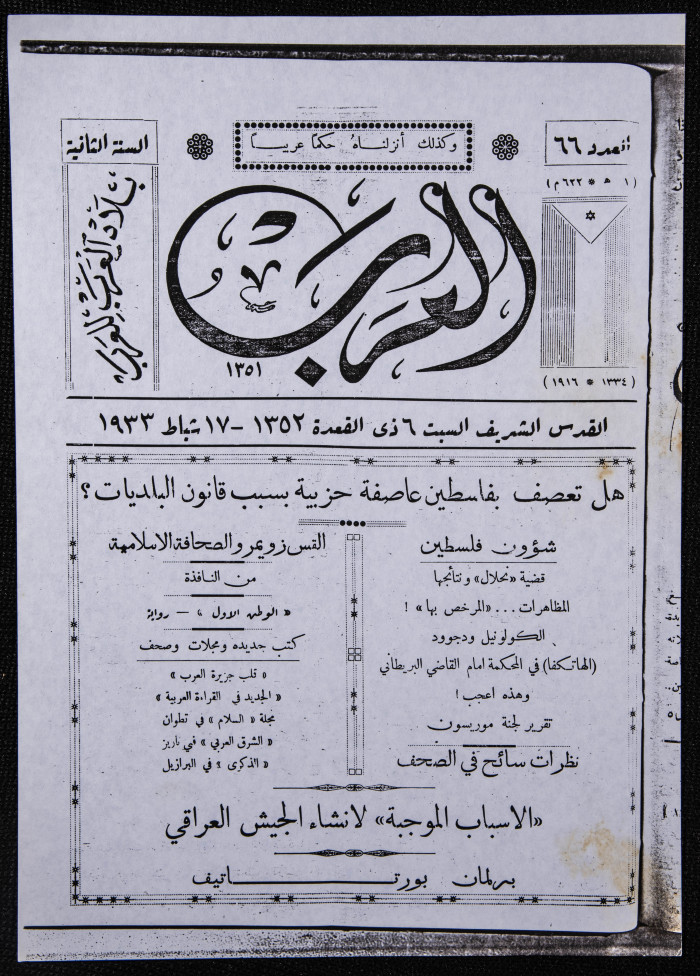 العدد ٦٦
وكذلك أنزلناه حكماً عربياً
السنة الثانية
( ١ هـ * ٦٢٢ م )
العرب
١٣٥١
بلاد العرب للعرب
( ١٣٣٤ * ١٩١٦ )
القدس الشريف السبت ٦ ذى القعدة ١٣٥٢ – ١٧ شباط ١٩٣٣
هل تعصف بفلسطين عاصفة حزبية بسبب قانون البلديات ؟
شؤون فلسطين
قضية «نحلال» ونتائجها
المظاهرات... «المرخص بها» !
الكولونيل ودجوود
(الهاتكفا) في المحكمة امام القاضي البريطاني
وهذه اعجب !
تقرير لجنة موريسون
نظرات سائح في الصحف
القس زويمر والصحافة الاسلامية
من النافذة
« الوطن الاول » – رواية
كتب جديده ومجلات وصحف
« قلب جزيرة العرب »
« الجديد في القراءة العربية »
مجلة « السلام » في تطوان
« الشرق العربي » في باريز
« الذكرى » في البرازيل
«الاسباب الموجبة» لانشاء الجيش العراقي
برلمان بورتـــــــاتيف